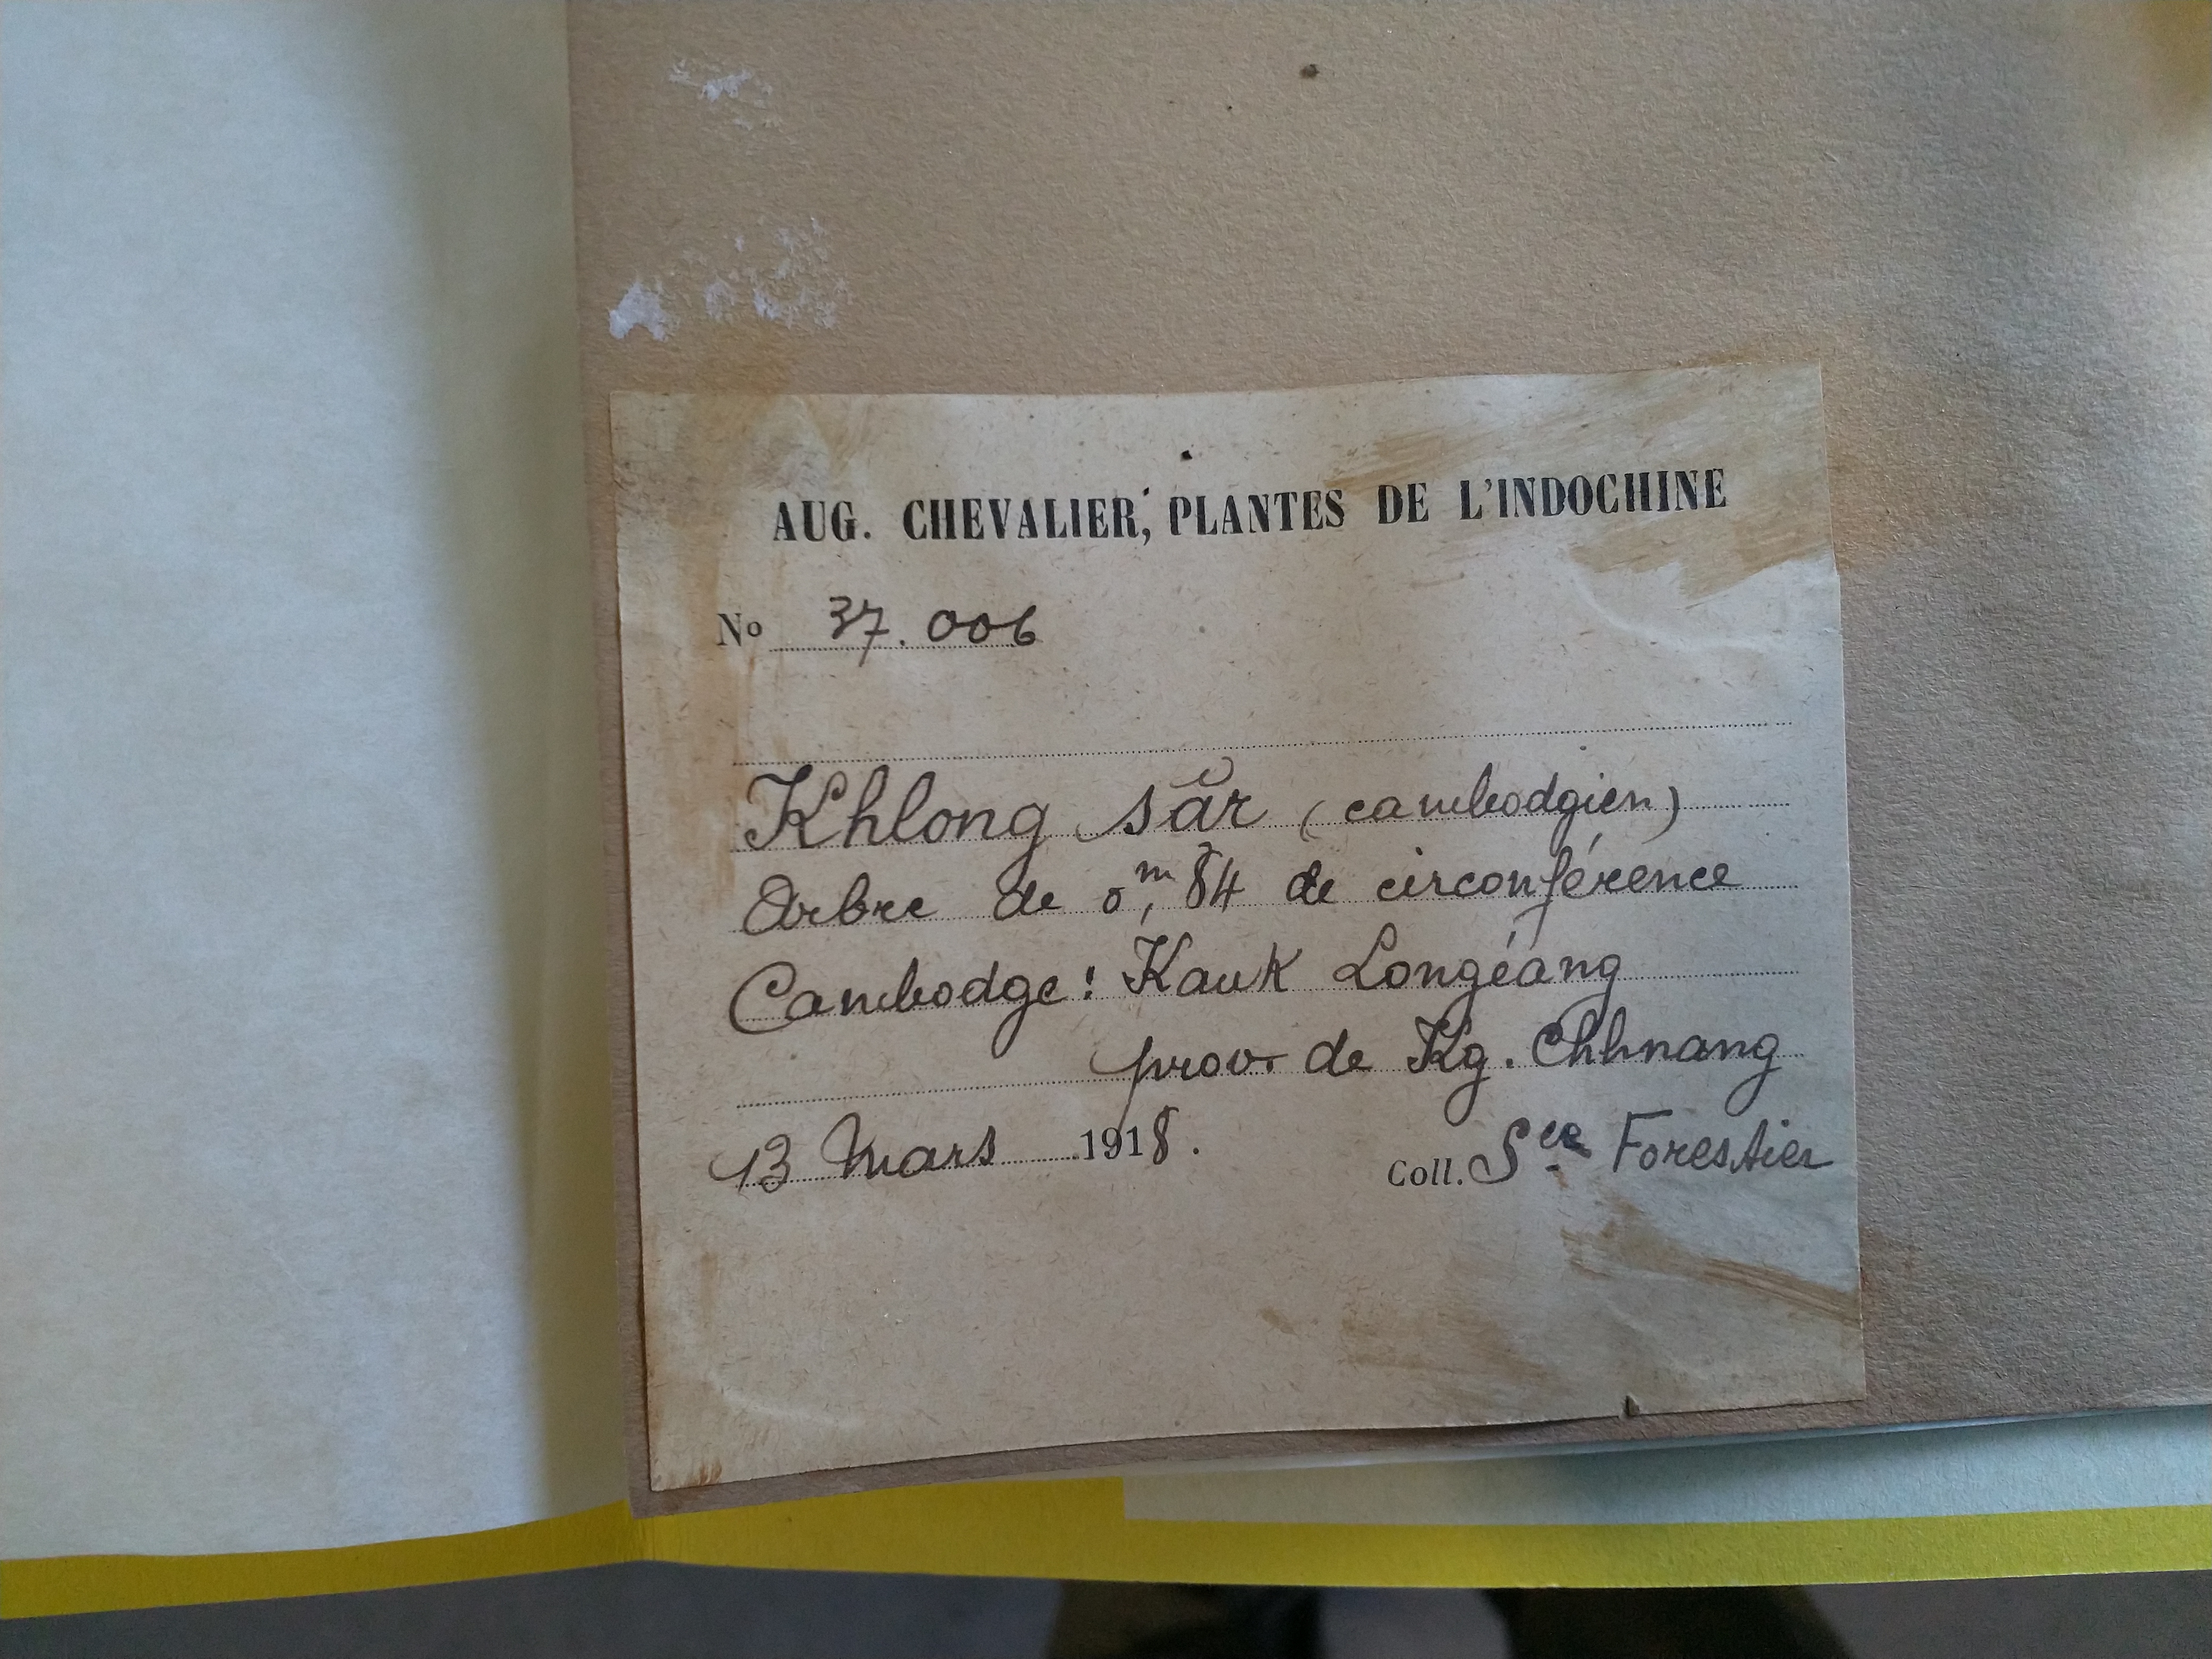 AUG. CHEVALIER, PLANTES DE L'INDOCHINE
No 37.006
Khlong săr (cambodgien)
Arbre de 0m,84 de circonférence
Cambodge: Kauk Longéang
prov. de Kg. Chhnang
13 Mars 1918.
Coll. Sce Forestier